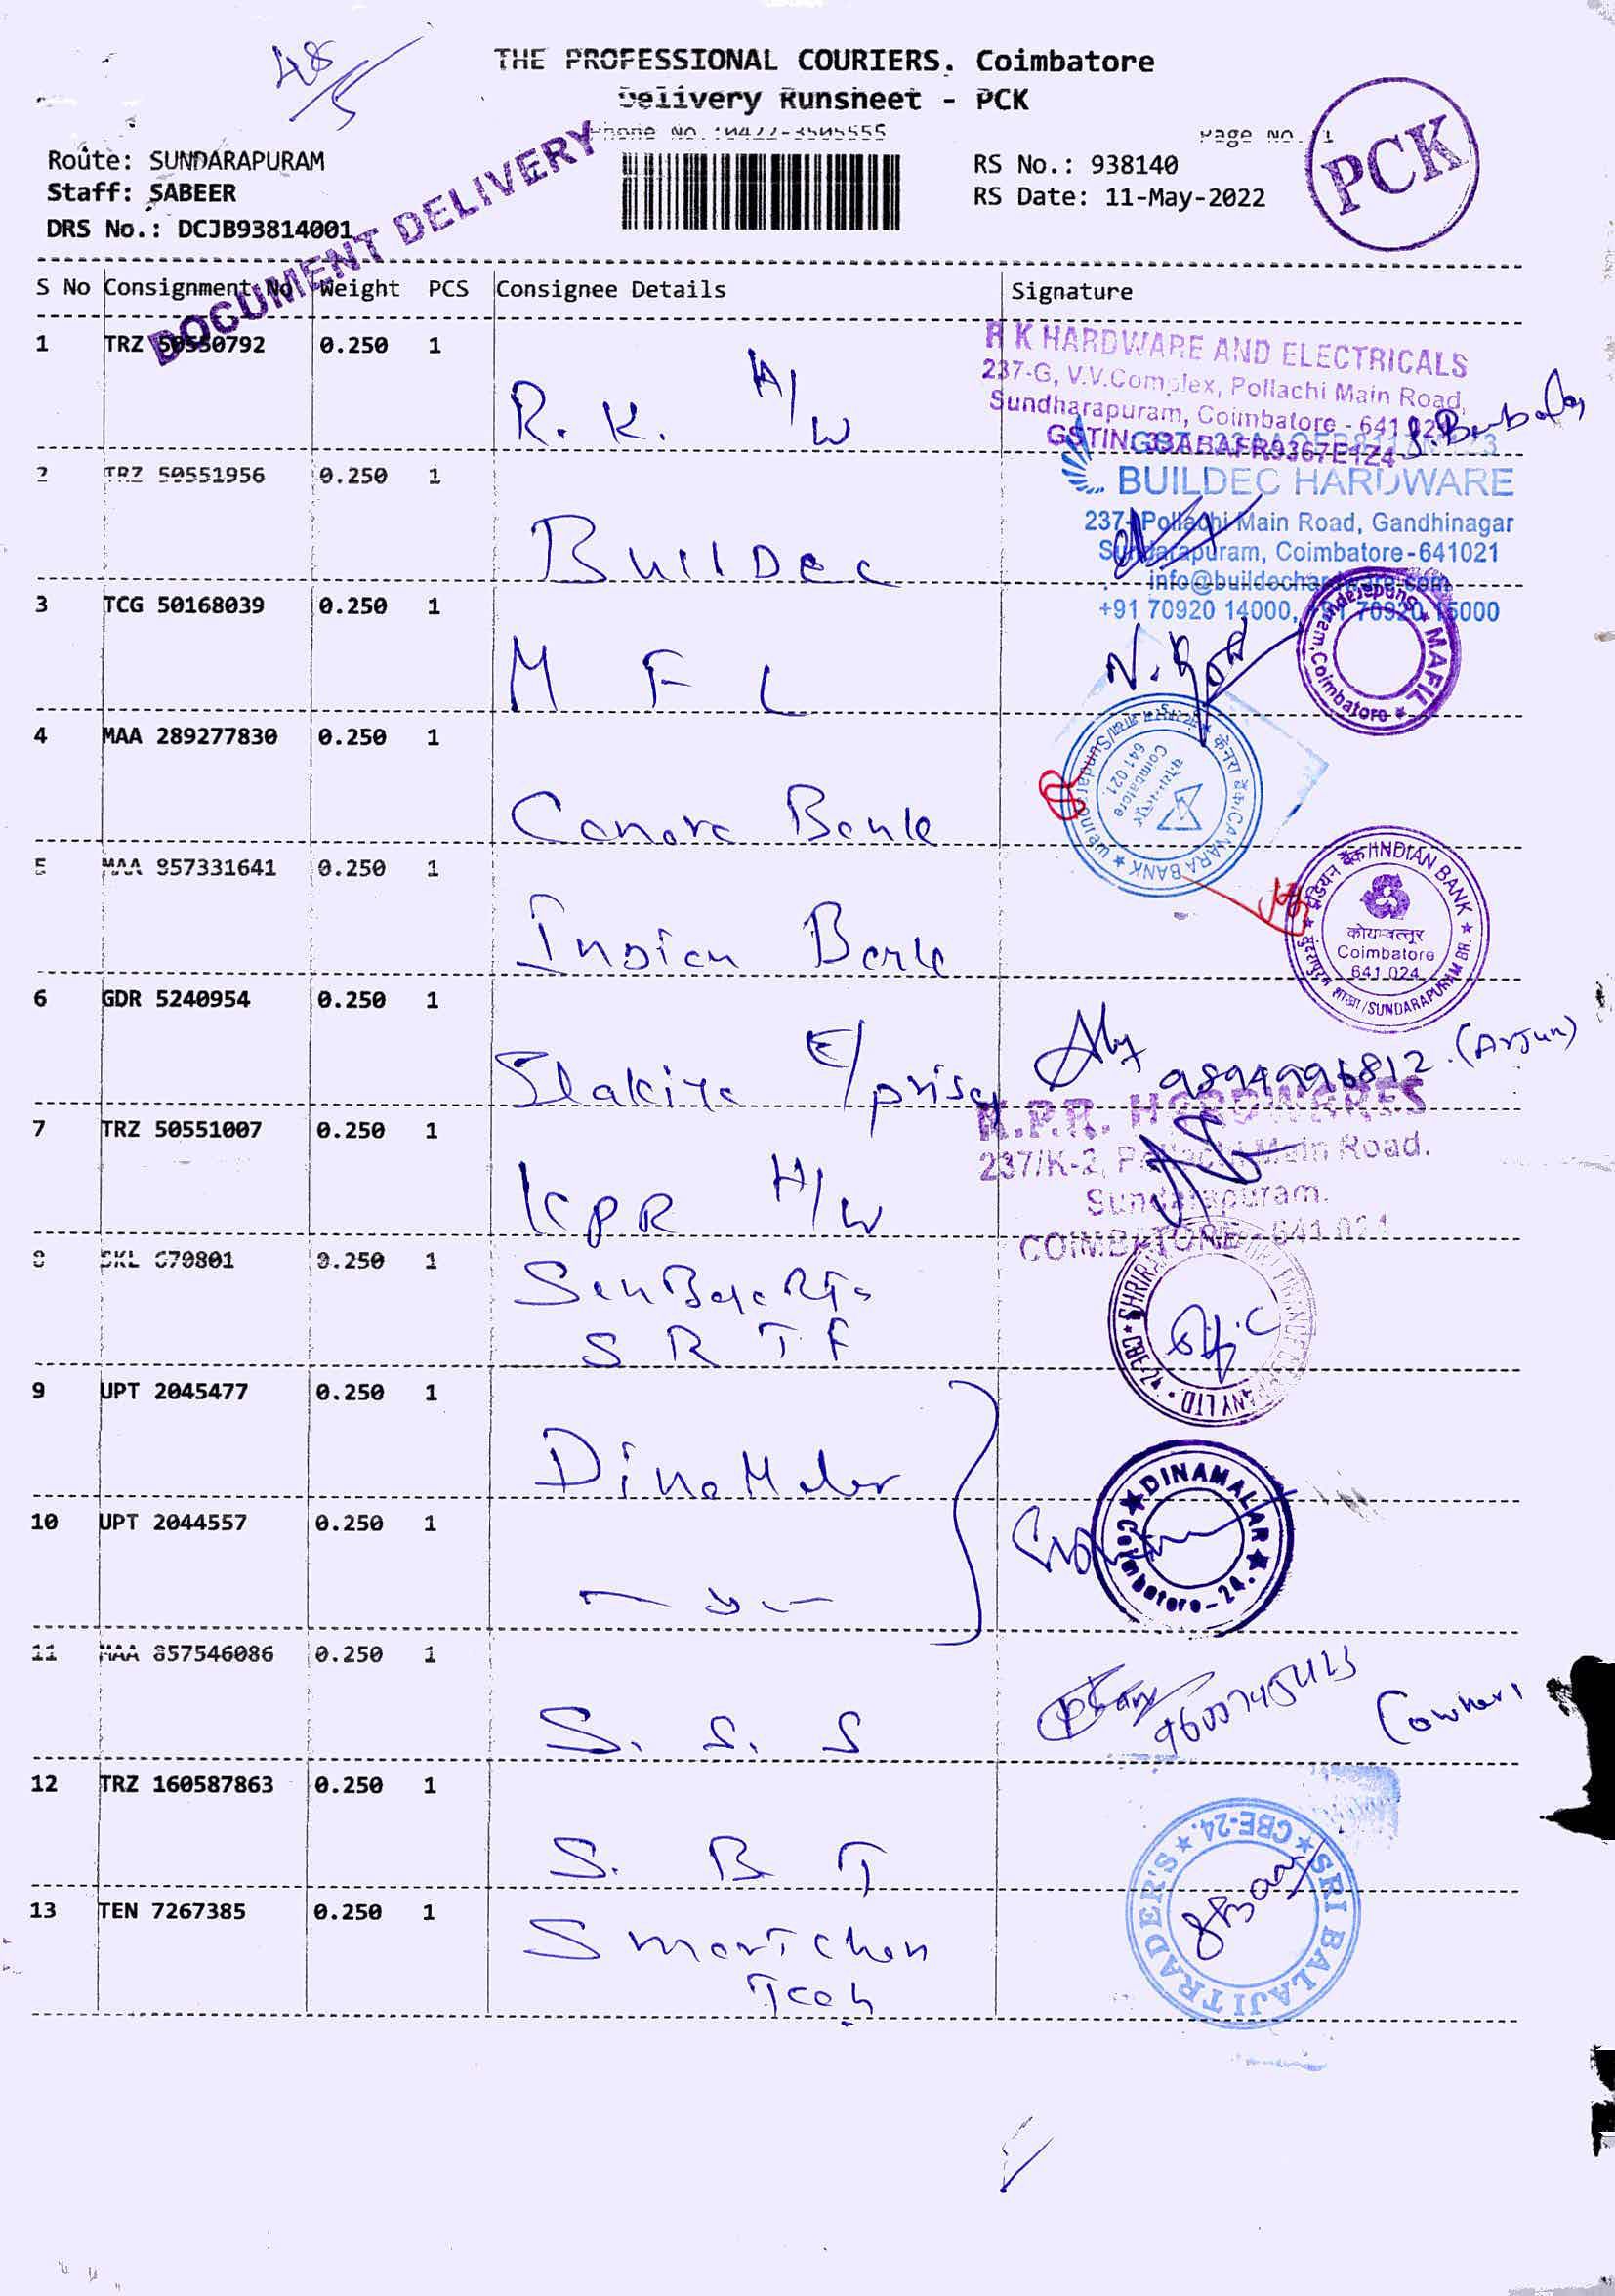 48/5
THE PROFESSIONAL COURIERS. Coimbatore
Delivery Runsheet - PCK
Phone No.:0422-3505555
Page No.:1
Route: SUNDARAPURAM
RS No.: 938140
PCK
Staff: SABEER
RS Date: 11-May-2022
DRS No.: DCJB93814001
DOCUMENT DELIVERY
S No Consignment No Weight PCS Consignee Details Signature
1 TRZ 50550792 0.250 1
R. K. H/W
R K HARDWARE AND ELECTRICALS
237-G, V.V.Complex, Pollachi Main Road,
Sundharapuram, Coimbatore - 641 024
GSTIN: 33ABAFR9367E1Z4
2 TRZ 50551956 0.250 1
BuilDec
BUILDEC HARDWARE
237- Pollachi Main Road, Gandhinagar
Sundarapuram, Coimbatore-641021
info@buildechardware.com
+91 70920 14000, +91 70920 15000
3 TCG 50168039 0.250 1
M F L
MAFIL
Sundarapuram, Coimbatore
4 MAA 289277830 0.250 1
Canara Bank
केनरा बैंक/CANARA BANK
/Sundarapuram
Coimbatore
641 021
5 MAA 957331641 0.250 1
Indian Bank
इंडियन बैंक/INDIAN BANK
कोयम्बत्तूर
Coimbatore
641 024
सुंदरापुरम शाखा/SUNDARAPURAM BR.
6 GDR 5240954 0.250 1
E/prises
9894996812. (Arjun)
7 TRZ 50551007 0.250 1
KPR H/W
K.P.R. HARDWARES
237/K-2, Pollachi Main Road.
Sundarapuram.
COIMBATORE - 641 024
8 SKL 670801 0.250 1
S R T F
9 UPT 2045477 0.250 1
DinaMalar
10 UPT 2044557 0.250 1
DINAMALAR
Coimbatore-24.
11 MAA 857546086 0.250 1
S. S. S
(owner)
12 TRZ 160587863 0.250 1
S. B T
SRI BALAJI TRADER'S
CBE-24.
13 TEN 7267385 0.250 1
Smartchon
Tech